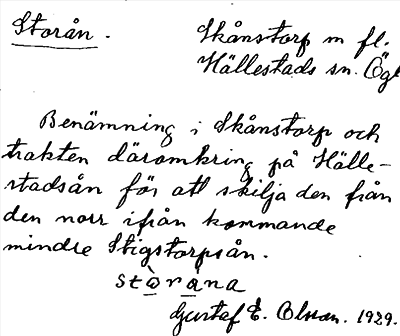 Storån.
Skånstorp m fl.
Hällestads sn. Ögl
Benämning i Skånstorp och
trakten däromkring på Hälle-
stadsån för att skilja den från
den norr ifrån kommande
mindre Stigstorpsån.
stòṛana
Gustaf E. Olsson. 1929.